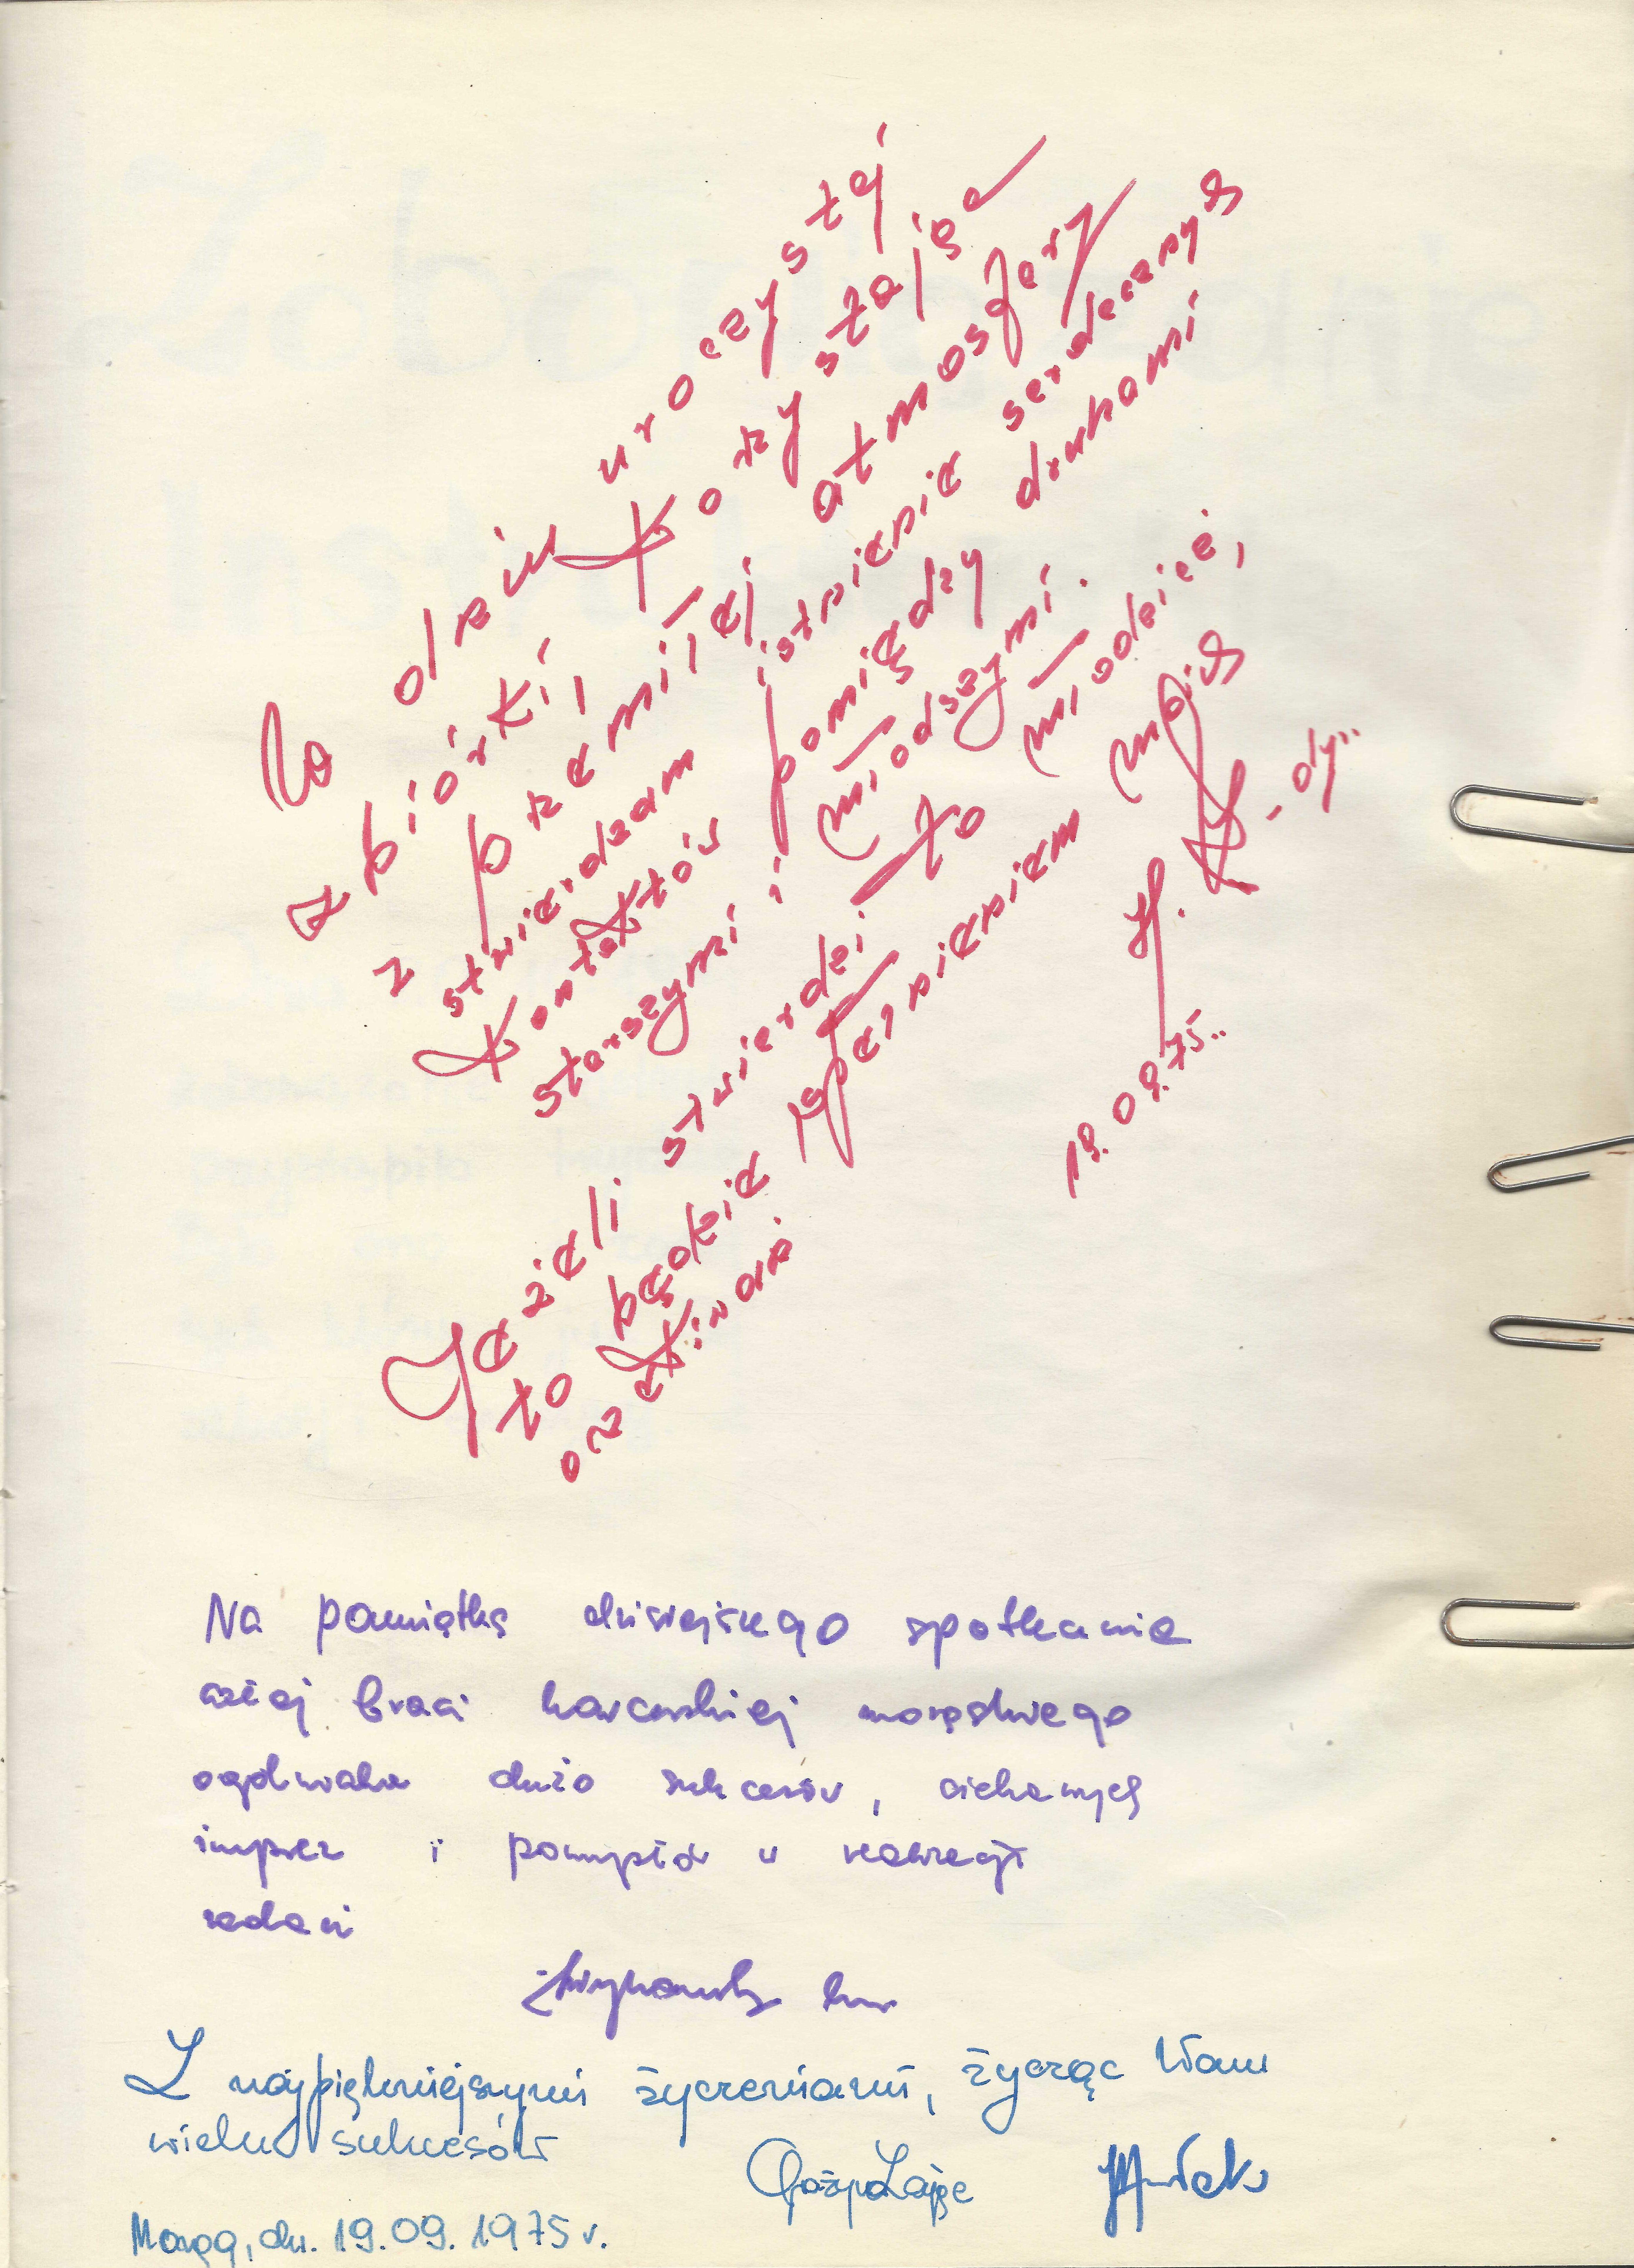 W dniu uroczystej
zbiórki, korzystając
z przemiłej atmosfery
stwierdzam istnienie serdecznych
kontaktów pomiędzy druhami
starszymi i młodszymi.
Jeżeli stwierdzi to młodzież,
to będzie spełnieniem moich
oczekiwań
19.09.75..
Na pamiątkę dzisiejszego spotkania
całej braci harcerskiej morąskiego
dużo sukcesów, ciekawych
imprez i pomysłów w realizacji
zadań
hm
Z najpiękniejszymi życzeniami, życząc Wam
wielu sukcesów
Morąg, dn. 19.09.1975 r.